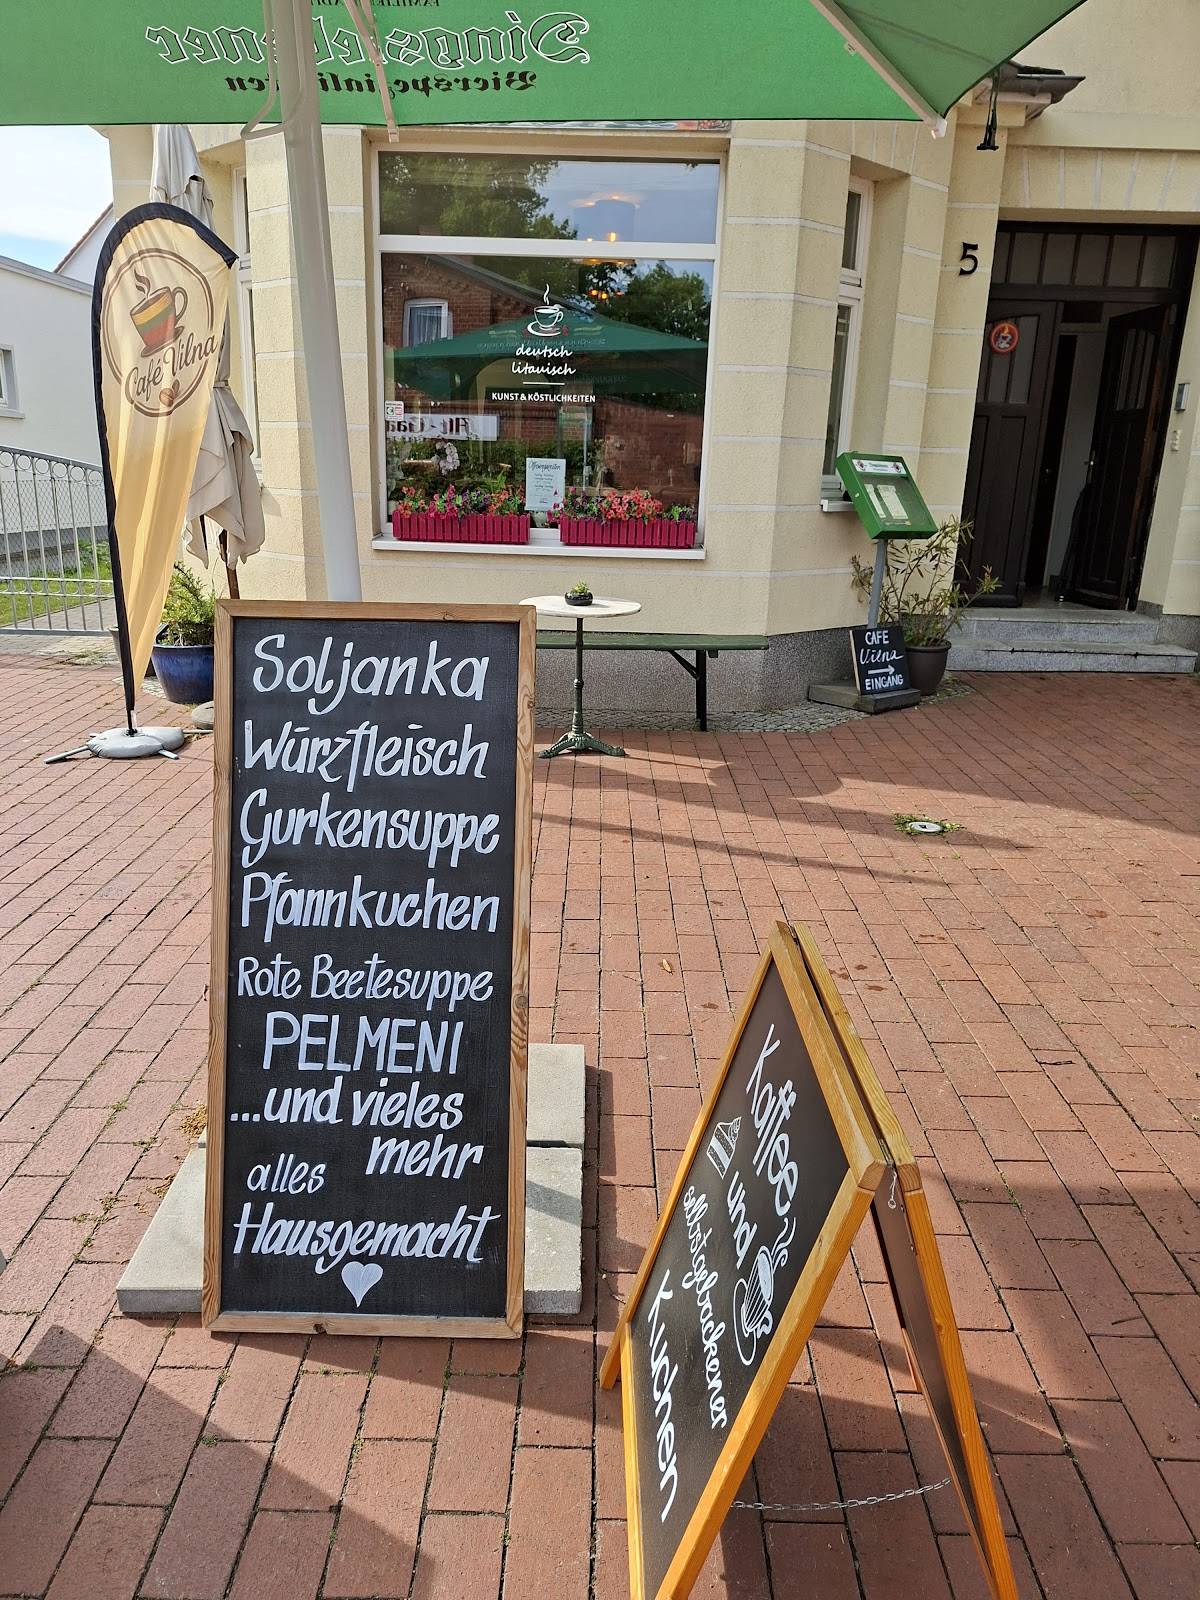 Dingslebener
Bierspezialitäten
Café Vilna
deutsch
litauisch
KUNST & KÖSTLICHKEITEN
Öffnungszeiten
5
CAFE
Vilna
EINGANG
Soljanka
Würzfleisch
Gurkensuppe
Pfannkuchen
Rote Beetesuppe
PELMENI
...und vieles
mehr
alles
Hausgemacht
Kaffee
und
selbstgebackener
Kuchen